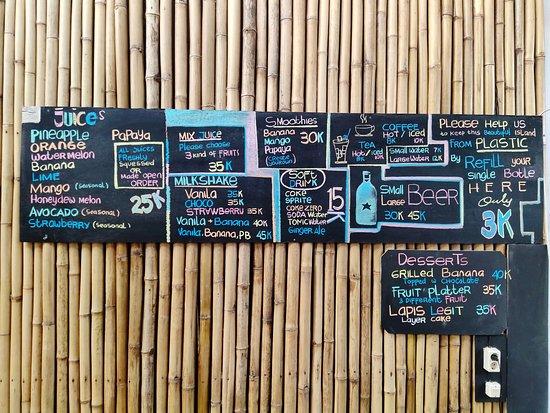 Juices
PINEAPPLE
ORANGE
WATERMELON
BANANA
LIME
MANGO (SEASONAL)
HONEYDEW MELON
AVOCADO (SEASONAL)
STRAWBERRY (SEASONAL)
PAPAYA
ALL JUICES
FRESHLY
SQUEESED
OR
MADE OPEN
ORDER
25K
MIX JUICE
Please choose
3 kind of FRUITS
35K
MILKSHAKE
VANILA 35K
CHOCO 35K
STRVWBERRI 35K
VANILA + BANANA 40K
VANILA, BANANA, PB 45K
SMOOTHIES
BANANA
MANGO
PAPAYA
30K
SOFT
DRINK
COKE
SPRITE
COKE ZERO
SODA WATER
TONIC WATER
GINGER ALE
15K
COFFEE
HOT / ICED
TEA
HOT / ICED
Small WATER 7K
Large WATER 12K
SMALL
LARGE
BEER
30K 45K
PLEASE HELP US
to KEEP this BEAUTIFUL ISLAND
FROM PLASTIC
BY REFILL YOUR
SINGLE BOTLE
HERE
ONLY
3K
DESSERTS
GRILLED BANANA 40K
TOPPED w CHOCOLATE
FRUIT PLATTER 35K
3 DIFFERENT FRUIT
LAPIS LEGIT 35K
LAYER CAKE